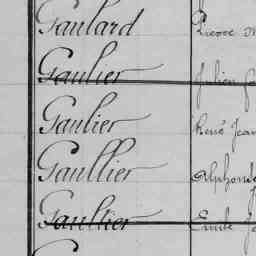 Gaulard Pierre
Gaulier Julien
Gaulier René Jean
Gaullier Alphonse
Gaullier Emile